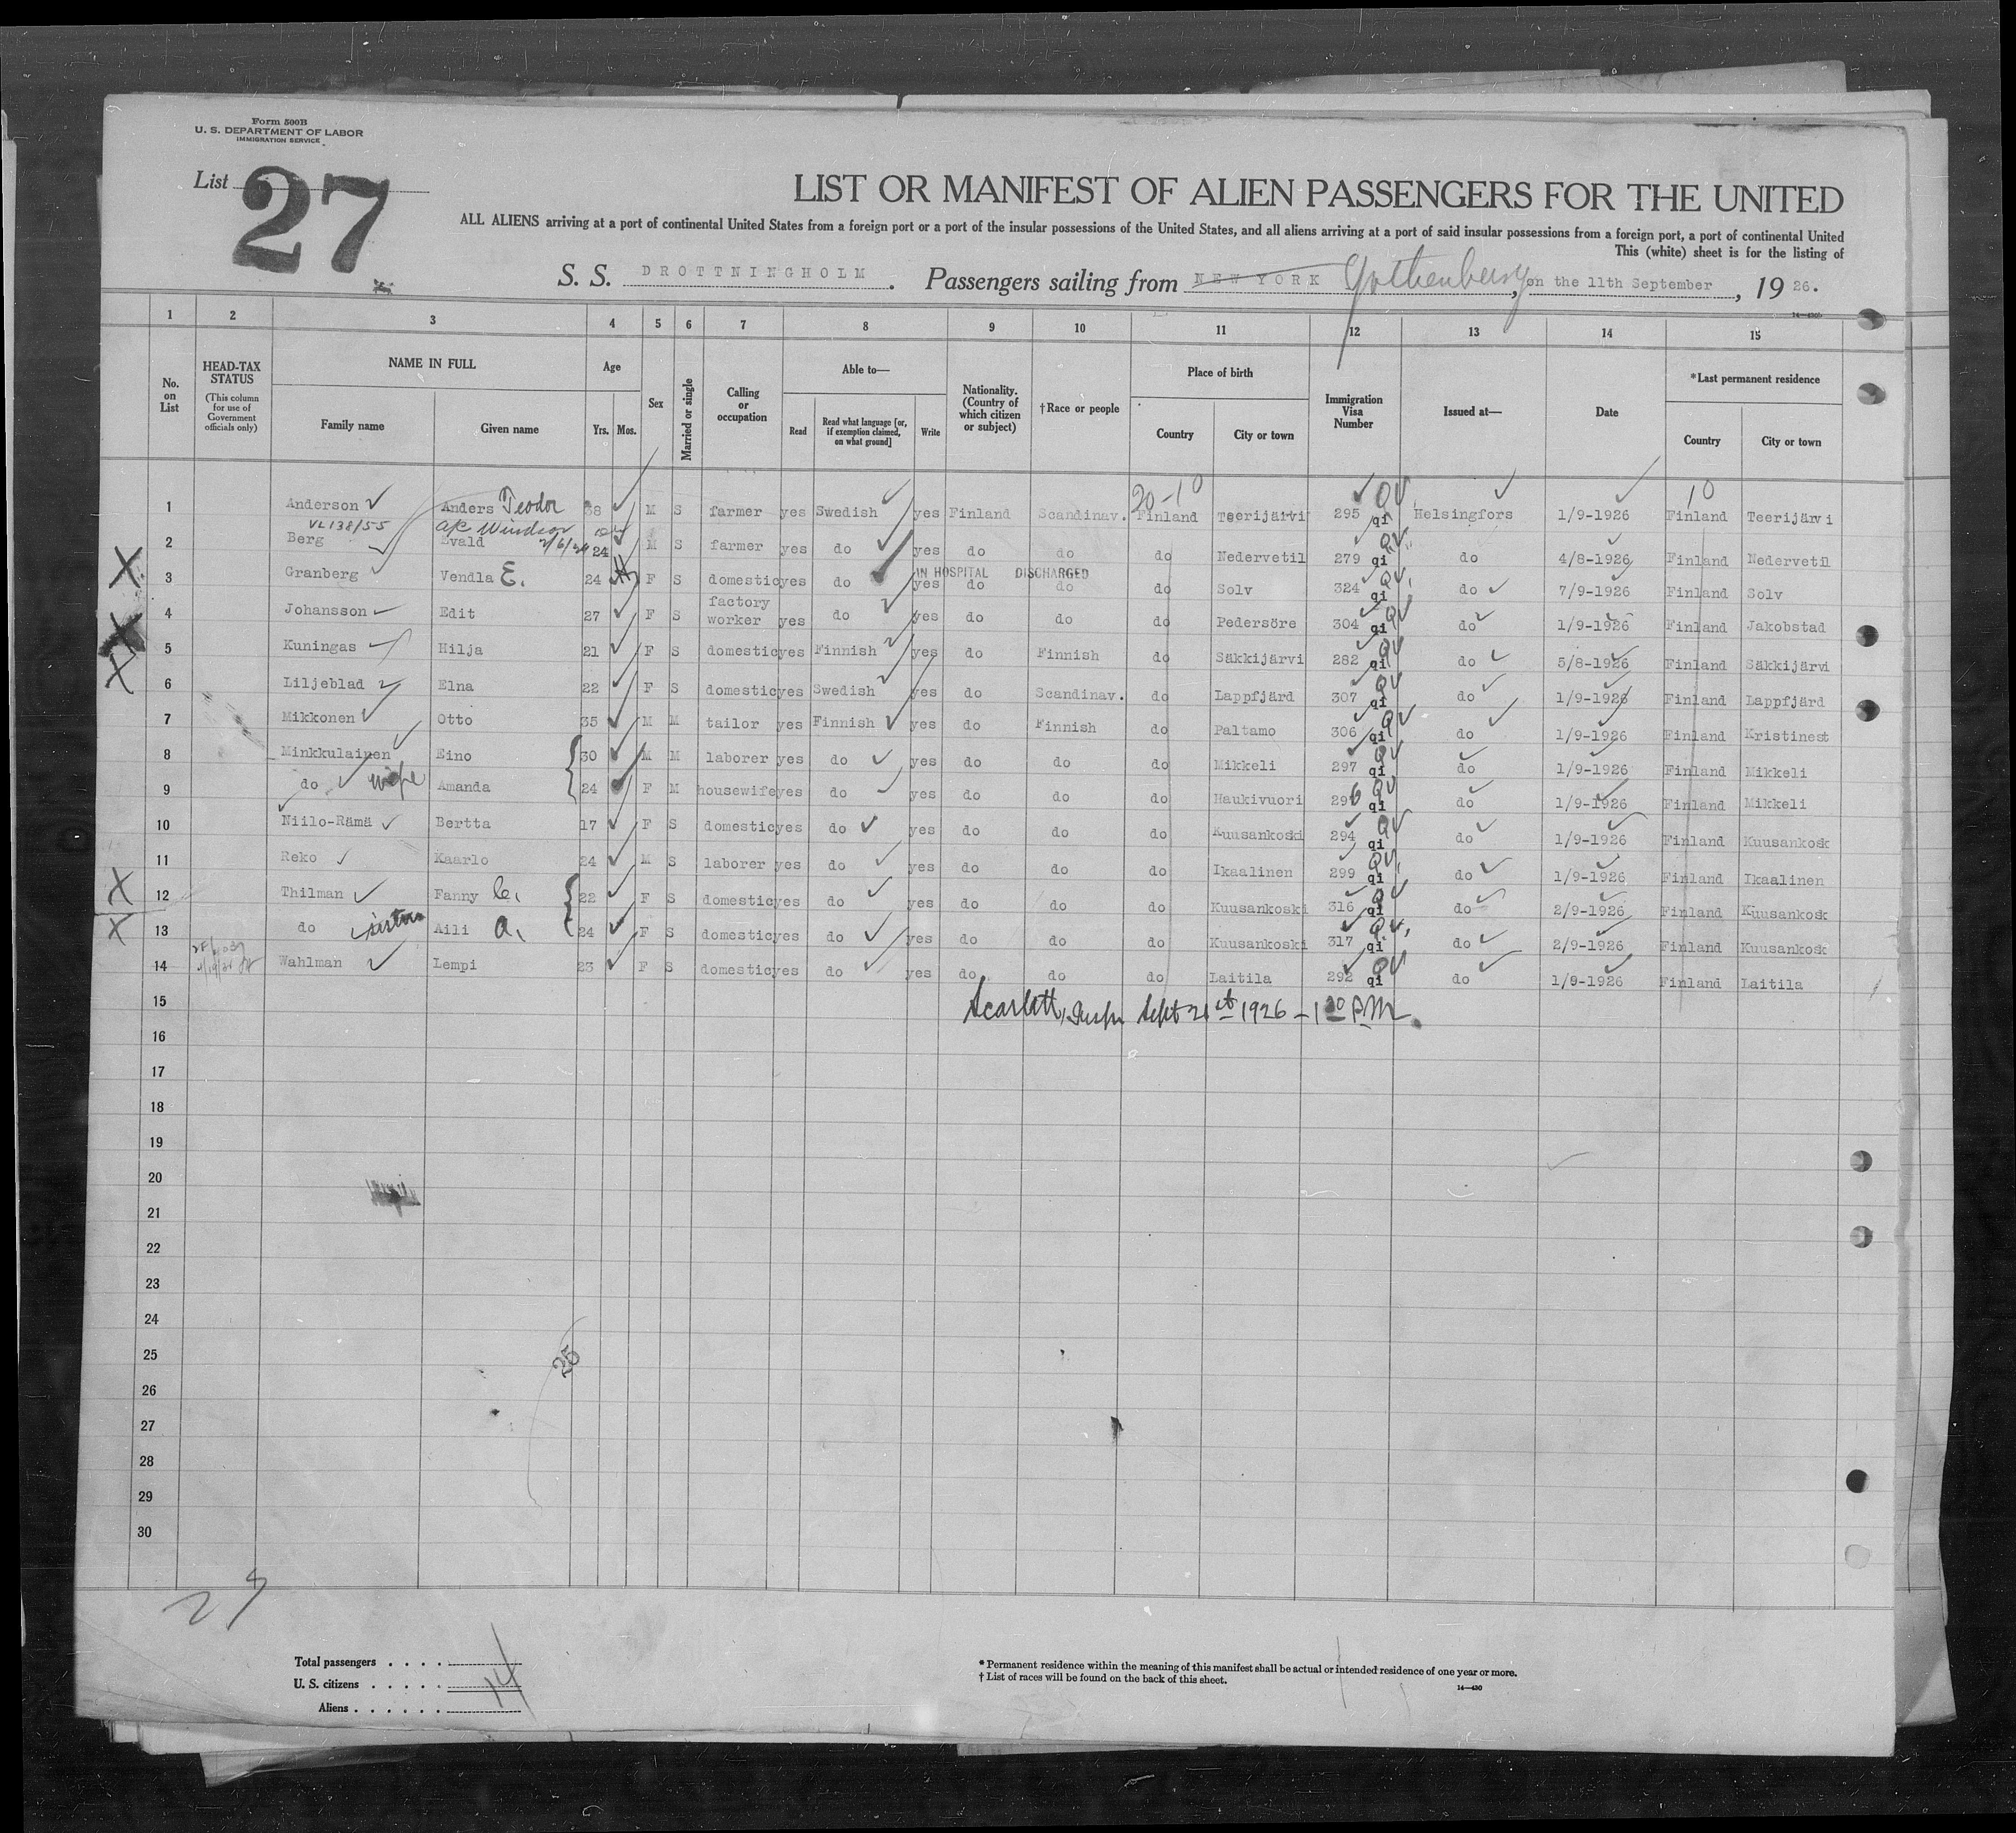 Form 500B
U. S. DEPARTMENT OF LABOR
IMMIGRATION SERVICE
List 27
LIST OR MANIFEST OF ALIEN PASSENGERS FOR THE UNITED
ALL ALIENS arriving at a port of continental United States from a foreign port or a port of the insular possessions of the United States, and all aliens arriving at a port of said insular possessions from a foreign port, a port of continental United
This (white) sheet is for the listing of
S. S. DROTTNINGHOLM. Passengers sailing from NEW YORK Gothenburg, on the 11th September, 1926.
1 2 3 4 5 6 7 8 9 10 11 12 13 14 15
No. on List
HEAD-TAX STATUS (This column for use of Government officials only)
NAME IN FULL
Family name
Given name
Age
Yrs. Mos.
Sex
Married or single
Calling or occupation
Able to—
Read
Read what language [or, if exemption claimed, on what ground]
Write
Nationality. (Country of which citizen or subject)
†Race or people
Place of birth
Country
City or town
Immigration Visa Number
Issued at—
Date
*Last permanent residence
Country
City or town
20-10 10
1 Anderson Anders Teodor 38 M S farmer yes Swedish yes Finland Scandinav. Finland Teerijärvi 295 qi QV Helsingfors 1/9-1926 Finland Teerijärvi
VL138/55
2 Berg Evald 24 M S farmer yes do yes do do do Nedervetil 279 qi QV do 4/8-1926 Finland Nedervetil
IN HOSPITAL DISCHARGED
3 Granberg Vendla E. 24 F S domestic yes do yes do do do Solv 324 qi QV do 7/9-1926 Finland Solv
4 Johansson Edit 27 F S factory worker yes do yes do do do Pedersöre 304 qi QV do 1/9-1926 Finland Jakobstad
5 Kuningas Hilja 21 F S domestic yes Finnish yes do Finnish do Säkkijärvi 282 qi QV do 5/8-1926 Finland Säkkijärvi
6 Liljeblad Elna 22 F S domestic yes Swedish yes do Scandinav. do Lappfjärd 307 qi QV do 1/9-1926 Finland Lappfjärd
7 Mikkonen Otto 35 M M tailor yes Finnish yes do Finnish do Paltamo 306 qi QV do 1/9-1926 Finland Kristinest
8 Minkkulainen Eino 30 M M laborer yes do yes do do do Mikkeli 297 qi QV do 1/9-1926 Finland Mikkeli
9 do wife Amanda 24 F M housewife yes do yes do do do Haukivuori 296 qi QV do 1/9-1926 Finland Mikkeli
10 Niilo-Rämä Bertta 17 F S domestic yes do yes do do do Kuusankoski 294 qi QV do 1/9-1926 Finland Kuusankosk
11 Reko Kaarlo 24 M S laborer yes do yes do do do Ikaalinen 299 qi QV do 1/9-1926 Finland Ikaalinen
12 Thilman Fanny 22 F S domestic yes do yes do do do Kuusankoski 316 qi QV do 2/9-1926 Finland Kuusankosk
13 do sister Aili A. 24 F S domestic yes do yes do do do Kuusankoski 317 qi QV do 2/9-1926 Finland Kuusankosk
14 Wahlman Lempi 23 F S domestic yes do yes do do do Laitila 292 qi QV do 1/9-1926 Finland Laitila
15 Scarlett, Insp. Sept 21st 1926 – 1 30 P.M.
16
17
18
19
20
21
22
23
24
25
26
27
28
29
30
25
Total passengers . . . .
U. S. citizens . . . . . 14
Aliens . . . . . .
*Permanent residence within the meaning of this manifest shall be actual or intended residence of one year or more.
†List of races will be found on the back of this sheet.
14—430